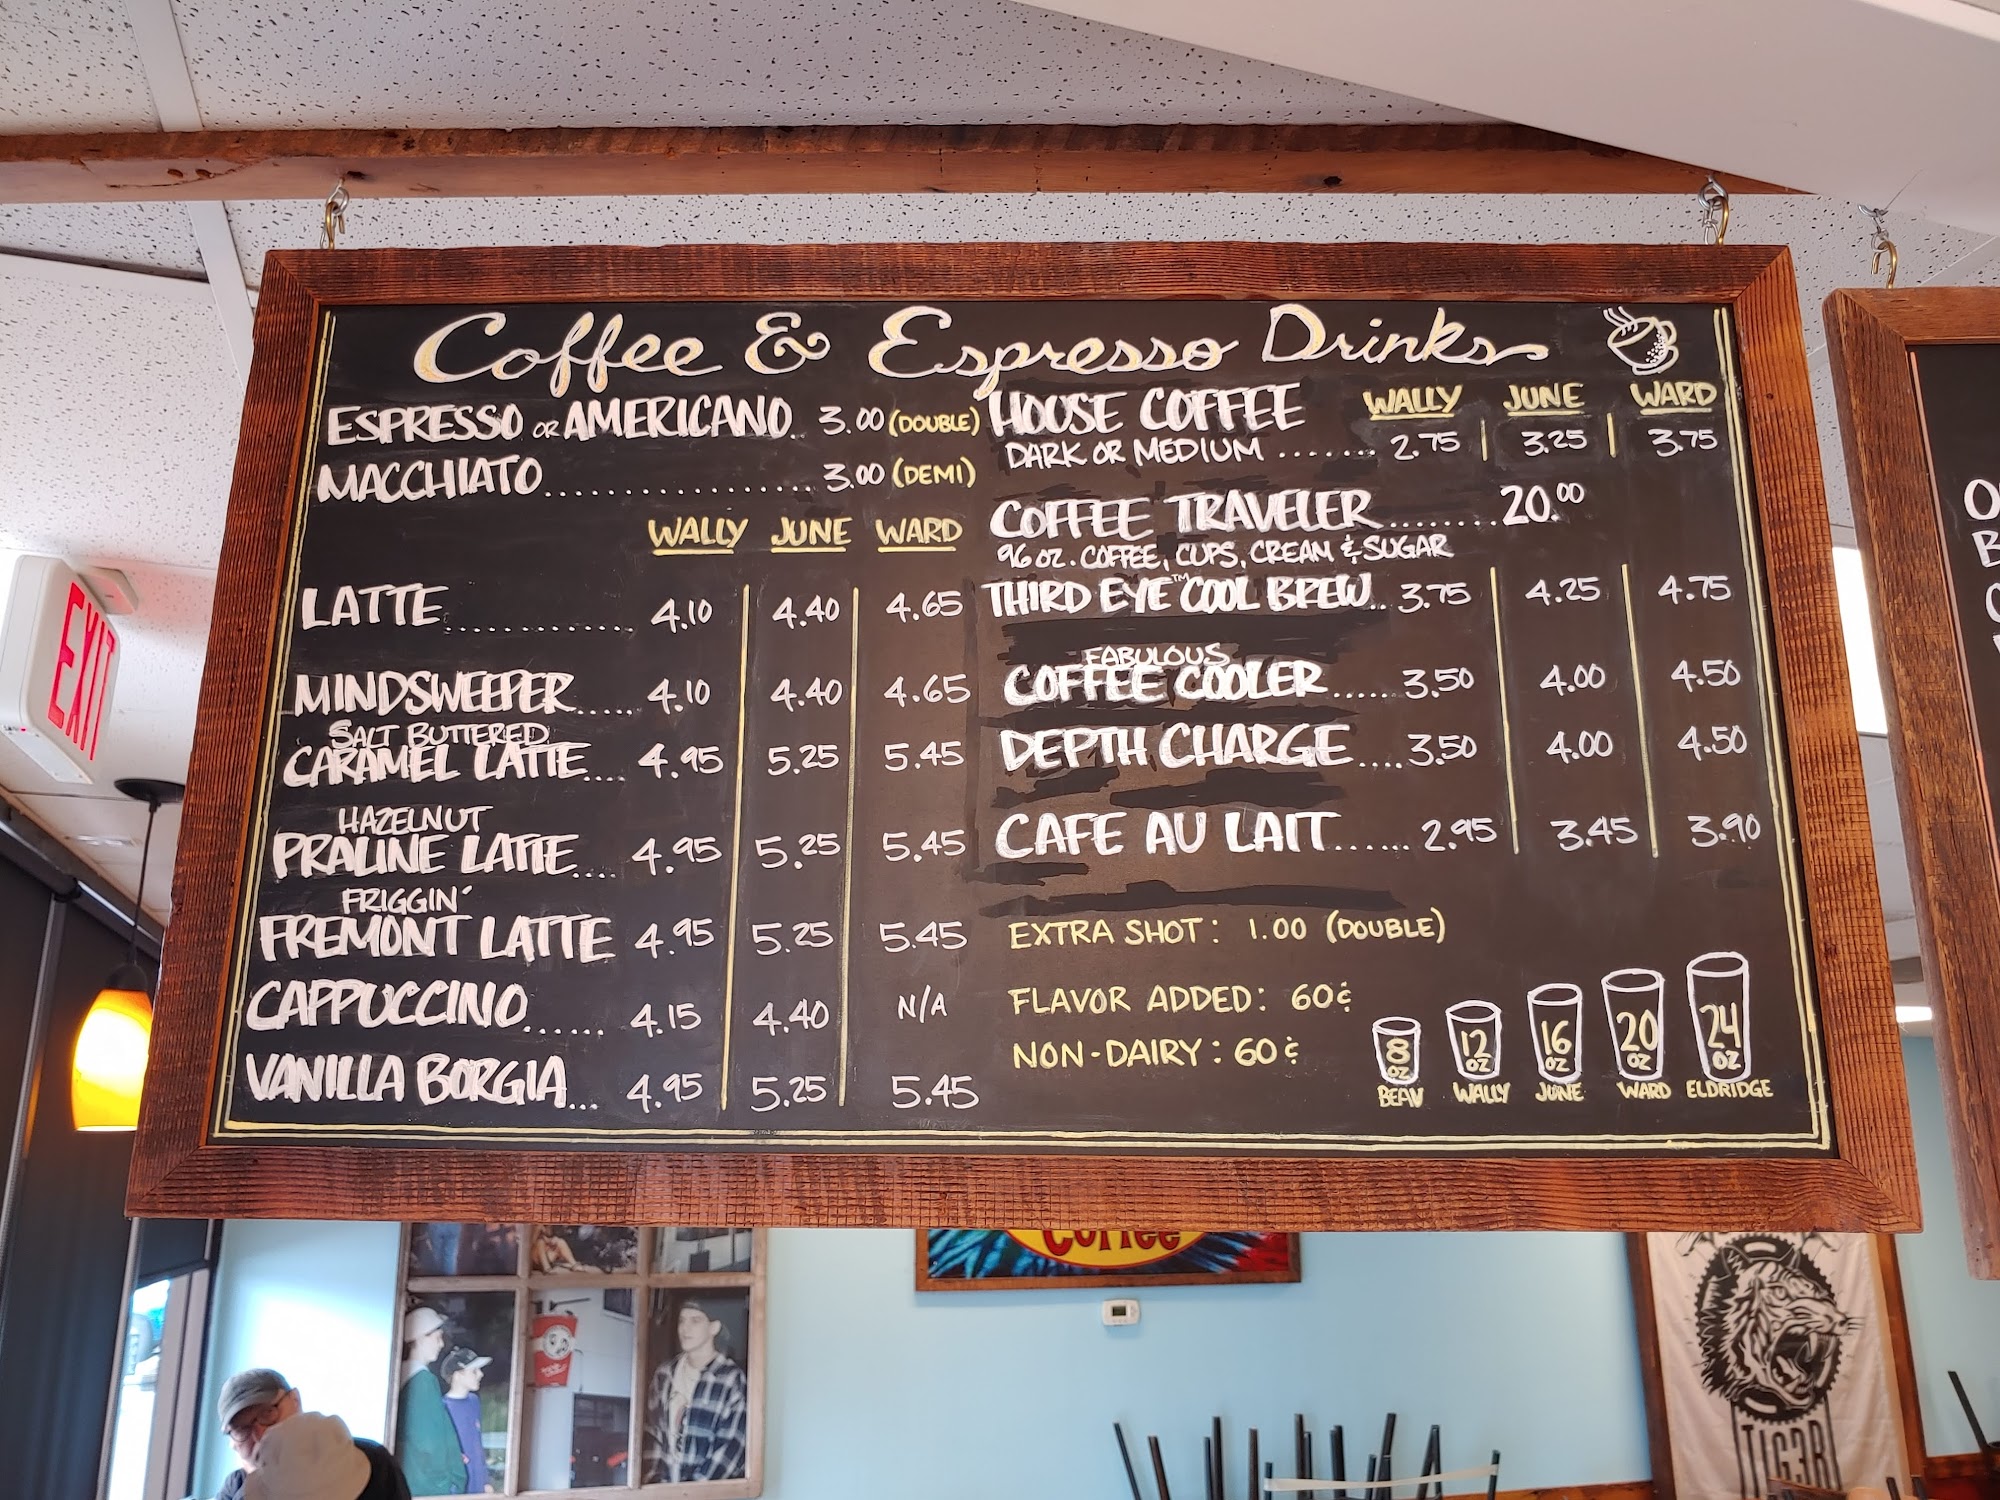 Coffee & Espresso Drinks
ESPRESSO OR AMERICANO.. 3.00 (DOUBLE)
MACCHIATO................. 3.00 (DEMI)
WALLY JUNE WARD
LATTE............. 4.10 4.40 4.65
MINDSWEEPER..... 4.10 4.40 4.65
SALT BUTTERED
CARAMEL LATTE.... 4.95 5.25 5.45
HAZELNUT
PRALINE LATTE.... 4.95 5.25 5.45
FRIGGIN'
FREMONT LATTE 4.95 5.25 5.45
CAPPUCCINO...... 4.15 4.40 N/A
VANILLA BORGIA... 4.95 5.25 5.45
HOUSE COFFEE WALLY JUNE WARD
DARK OR MEDIUM ....... 2.75 3.25 3.75
COFFEE TRAVELER........20.00
96 OZ. COFFEE, CUPS, CREAM & SUGAR
THIRD EYE™ COOL BREW.. 3.75 4.25 4.75
FABULOUS
COFFEE COOLER......3.50 4.00 4.50
DEPTH CHARGE....3.50 4.00 4.50
CAFE AU LAIT...... 2.95 3.45 3.90
EXTRA SHOT: 1.00 (DOUBLE)
FLAVOR ADDED: 60¢
NON-DAIRY: 60¢
8 OZ 12 OZ 16 OZ 20 OZ 24 OZ
BEAV WALLY JUNE WARD ELDRIDGE
EXIT
Coffee
TIG3R